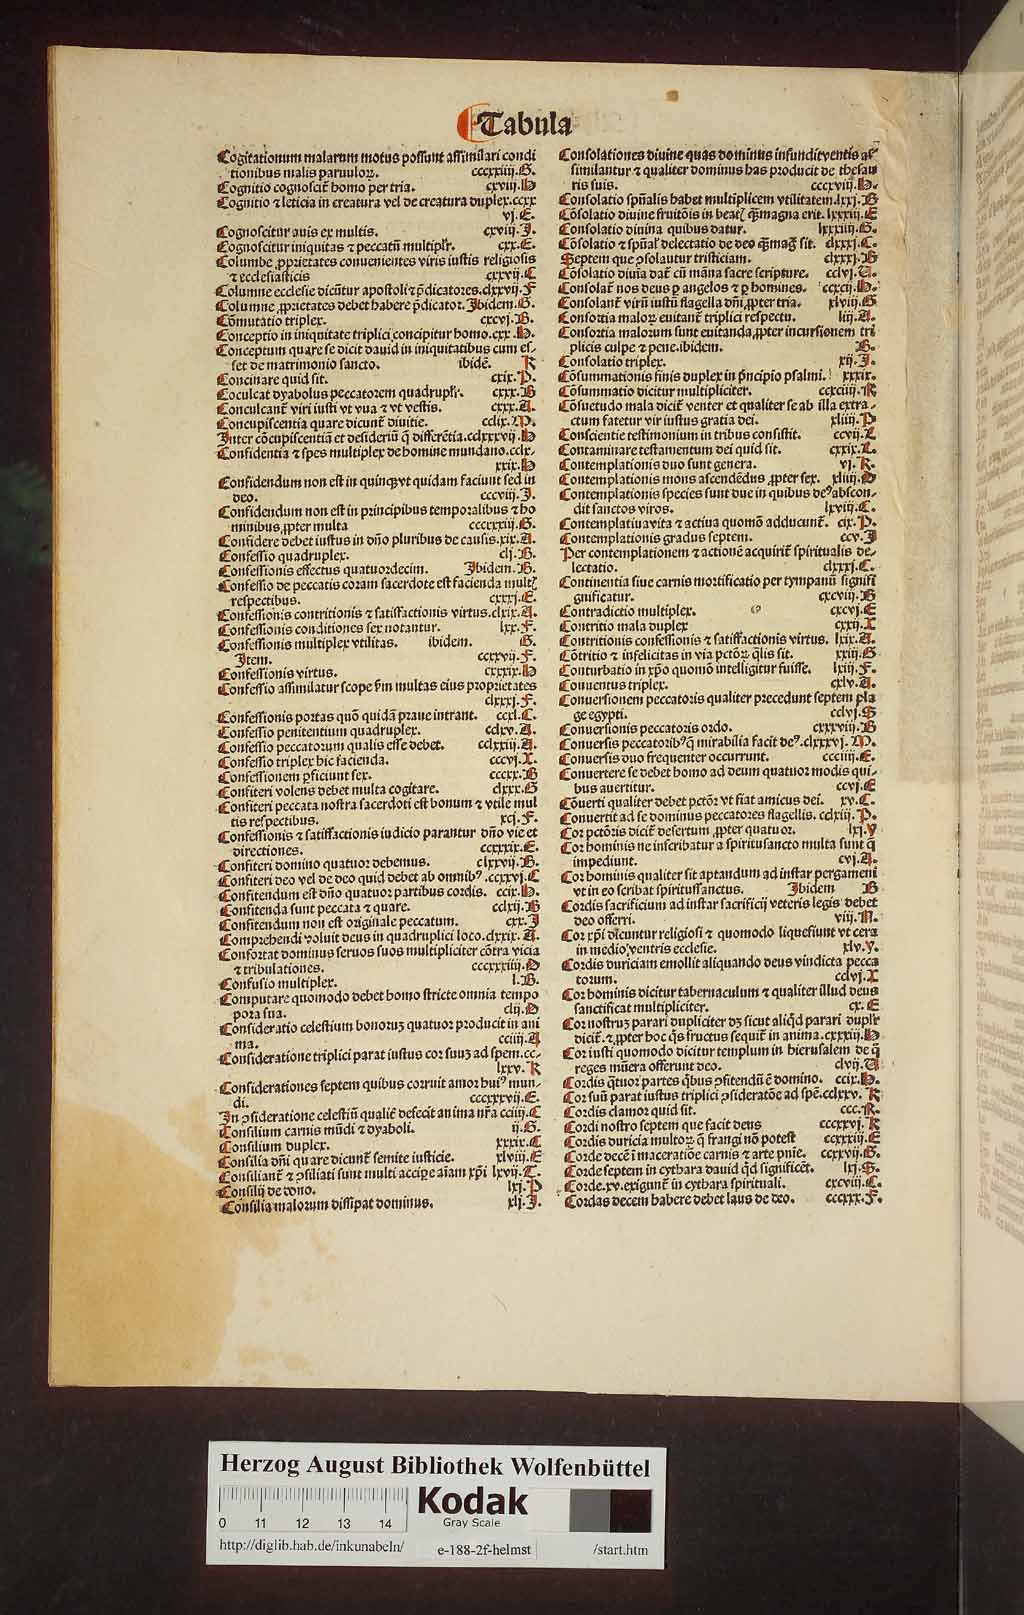 Tabula
Cogitationum malarum motus possunt assimilari condi
tionibus malis paruuloꝝ. ccccxxiiij.G.
Cognitio cognoscit homo per tria. cxviij.H
Cognitio ⁊ leticia in creatura vel de creatura duplex.ccxx
vj.E.
Cognoscitur auis ex multis. cxviij.I.
Cognoscitur iniquitas ⁊ peccatū multipłr. cxx.E.
Columbe ꝓprietates conuenientes viris iustis religiosis
⁊ ecclesiasticis cxxvij.C
Columne ecclesie dicūtur apostoli ⁊ p̄dicatores.clxxvij.F
Columne ꝓprietates debet habere p̄dicator. Ibidem.G.
Cōmutatio triplex. cxcvj.B.
Conceptio in iniquitate triplici concipitur homo.cxx.H.
Conceptum quare se dicit dauid in iniquitatibus cum es-
set de matrimonio sancto. ibidē. K
Concinare quid sit. cxix.P.
Coculcat dyabolus peccatorem quadrupłr. cxxx.B
Conculcant̄ viri iusti vt vua ⁊ vt vestis. cxxx.A.
Concupiscentia quare dicunt̄ diuitie. cclix.M.
Inter cōcupiscentiā et desideriū q̄ differētia.cclxxxvij.H
Confidentia ⁊ spes multiplex de homine mundano.cclx-
xxix.H
Confidendum non est in quinqꝫ vt quidam faciunt sed in
deo. cccviij.I.
Confidendum non est in principibus temporalibus ⁊ ho
minibus ꝓpter multa ccccxxiij.G.
Confidere debet iustus in dn̄o pluribus de causis.xix.A.
Confessio quadruplex. clj.B.
Confessionis effectus quatuordecim. Ibidem.B.
Confessio de peccatis coram sacerdote est facienda mult
respectibus. cxxxj.E.
Confessionis contritionis ⁊ satisfactionis virtus.clxix.A.
Confessionis conditiones sex notantur. lxx.F.
Confessionis multiplex vtilitas. ibidem. G.
Item. ccxxvij.F.
Confessionis virtus. cxxxix.H
Confessio assimilatur scope ẜm multas eius proprietates
clxxxj.F.
Confessionis portas quō quidā praue intrant. ccxl.C.
Confessio penitentium quadruplex. cclxv.A.
Confessio peccatorum qualis esse debet. cclxxiij.A.
Confessio triplex hic facienda. cccvj.X.
Confessionem ꝑficiunt sex. ccccxx.B
Confiteri volens debet multa cogitare. clxxx.G
Confiteri peccata nostra sacerdoti est bonum ⁊ vtile mul
tis respectibus. xcj.F.
Confessionis ⁊ satisfactionis iudicio parantur dn̄o vie et
directiones. ccxxxix.E.
Confiteri domino quatuor debemus. clxxvij.B.
Confiteri deo vel de deo quid debet ab omnibꝰ.ccxxvj.C
Confitendum est dn̄o quatuor partibus cordis. ccix.H.
Confitenda sunt peccata ⁊ quare. cclxij.B
Confitendum non est originale peccatum. cxx.I
Comprehendi voluit deus in quadruplici loco.clxxix.A.
Confortat dominus seruos suos multipliciter cōtra vicia
⁊ tribulationes. cccxxxiiij.D
Confusio multiplex. l.B.
Computare quomodo debet homo stricte omnia tempo
pora sua. clij.D
Consideratio celestium bonoruꝫ quatuor producit in ani
ma. cciiij.A
Consideratione triplici parat iustus cor suuꝫ ad spem.cc-
lxxv.K
Considerationes septem quibus corruit amor huiꝰ mun-
di. ccccxxvij.E.
In ꝯsideratione celestiū qualiē defecit anima nr̄a cciiij.C
Consilium carnis mūdi ⁊ dyaboli. ij.G.
Consilium duplex. xxxix.C
Consilia dn̄i quare dicunt̄ semite iusticie. xlviij.E
Consiliant̄ ⁊ ꝯsiliati sunt multi accipe aīam xp̄i lxvij.T.
Consilij de dono. lxj.P
Consilia malorum dissipat dominus. xlj.I.
Consolationes diuine quas dominus infundit ventis as
similantur ⁊ qualiter dominus has producit de thesau
ris suis. cccxviij.H.
Consolatio spūalis habet multiplicem vtilitatem.lxxj.B
Cōsolatio diuine fruitōis in beat q̄ꝫ magna erit. lxxxiij.E
Consolatio diuina quibus datur. lxxxiiij.G.
Cōsolatio ⁊ spūal delectatio de deo q̄ꝫ mag sit. clxxxj.C.
Septem que ꝯsolautur tristiciam. clxxxj.B
Cōsolatio diuīa dat̄ cū māna sacre scripture. cclvj.A.
Consolat̄ nos deus ꝑ angelos ⁊ ꝑ homines. ccxcij.H.
Consolant̄ virū iustū flagella dn̄i ꝓpter tria. xlviij.G
Consortia maloꝝ euitant̄ triplici respectu. liij.A.
Consortia malorum sunt euitanda ꝓpter incursionem tri
plicis culpe ⁊ pene.ibidem. B.
Consolatio triplex. xij.I.
Cōsummationis finis duplex in p̄ncipio psalmi. xxxix.
Cōsummatio dicitur multipliciter. ccxciiij.K
Cōsuetudo mala dicit̄ venter et qualiter se ab illa extra-
ctum fatetur vir iustus gratia dei. xliiij.P
Conscientie testimonium in tribus consistit. ccvij.L
Contaminare testamentum dei quid sit. cxxix.L.
Contemplationis duo sunt genera. vj.K.
Contemplationis mons ascendēdus ꝓpter sex. xliiij.D
Contemplationis species sunt due in quibus deꝰ abscon-
dit sanctos viros. lxviij.C.
Contemplatiua vita ⁊ actiua quomō adducunt̄. cix.P.
Contemplationis gradus septem. ccv.I
Per contemplationem ⁊ actionē acquirit̄ spiritualis de-
lectatio. clxxxj.C.
Continentia siue carnis mortificatio per tympanū signifi
gnificatur. cxcviij.B
Contradictio multiplex. cxcvj.E
Contritio mala duplex cxxij.X
Contritionis confessionis ⁊ satisfactionis virtus. lxix.A.
Cōtritio ⁊ infelicitas in via pctōꝝ q̄lis sit. xxiij.G
Conturbatio in xp̄o quomō intelligitur fuisse. lxiij.F.
Conuentus triplex. cxlv.A.
Conuersionem peccatoris qualiter precedunt septem pla
ge egypti. cclvj.S
Conuersionis peccatoris ordo. cxxxviij.B
Conuersis peccatoribꝰ q̄ mirabilia facit deꝰ.clxxxvj.M.
Conuersis duo frequenter occurrunt. ccciiij.E.
Conuertere se debet homo ad deum quatuor modis qui-
bus auertitur. ccvj.E
Cōuerti qualiter debet pctōr vt fiat amicus dei. xv.C.
Conuertit ad se dominus peccatores flagellis. cclxiij.P.
Cor pctōris dicit̄ desertum ꝓpter quatuor. lxj.V
Cor hominis ne inscribatur a spiritusancto multa sunt q̄
impediunt. cvj.A.
Cor hominis qualiter sit aptandum ad instar pergameni
vt in eo scribat spiritussanctus. Ibidem B
Cordis sacrificium ad instar sacrificij veteris legis debet
deo offerri. viij.N.
Cor xp̄i dicuntur religiosi ⁊ quomodo liquefiunt vt cera
in medio ventris ecclesie. xlv.V.
Cordis duriciam emollit aliquando deus vindicta pecca
torum. cclvj.X
Cor hominis dicitur tabernaculum ⁊ qualiter illud deus
sanctificat multipliciter. cx.E
Cor nostruꝫ parari dupliciter dꝫ sicut aliq̄d parari dupłr
dicit̄.⁊ ꝓpter hoc q̄s fructus sequit̄ in anima.cxxxij.H
Cor iusti quomodo dicitur templum in hierusalem de q̄
reges mūera offerunt deo. clvij.A
Cordis q̄tuor partes q̄bus ꝯfitendū ē domino. ccix.H.
Cor suū parat iustus triplici ꝯsideratōe ad spē.cclxxv.K
Cordis clamor quid sit. ccc.R.
Cordi nostro septem que facit deus cccxxvj.K
Cordis duricia multoꝝ q̄ frangi nō potest ccxxxiij.E
Corde decē ī maceratiōe carnis ⁊ arte pnīe. ccxxvij.G.
Corde septem in cythara dauid q̄d significēt. lxj.S.
Corde.xv.exigunt̄ in cythara spirituali. cxcviij.C.
Cordas decem habere debet laus de deo. cccxxx.F.
Herzog August Bibliothek Wolfenbüttel
Kodak
Gray Scale
0 11 12 13 14
http://diglib.hab.de/inkunabeln/ e-188-2f-helmst /start.htm